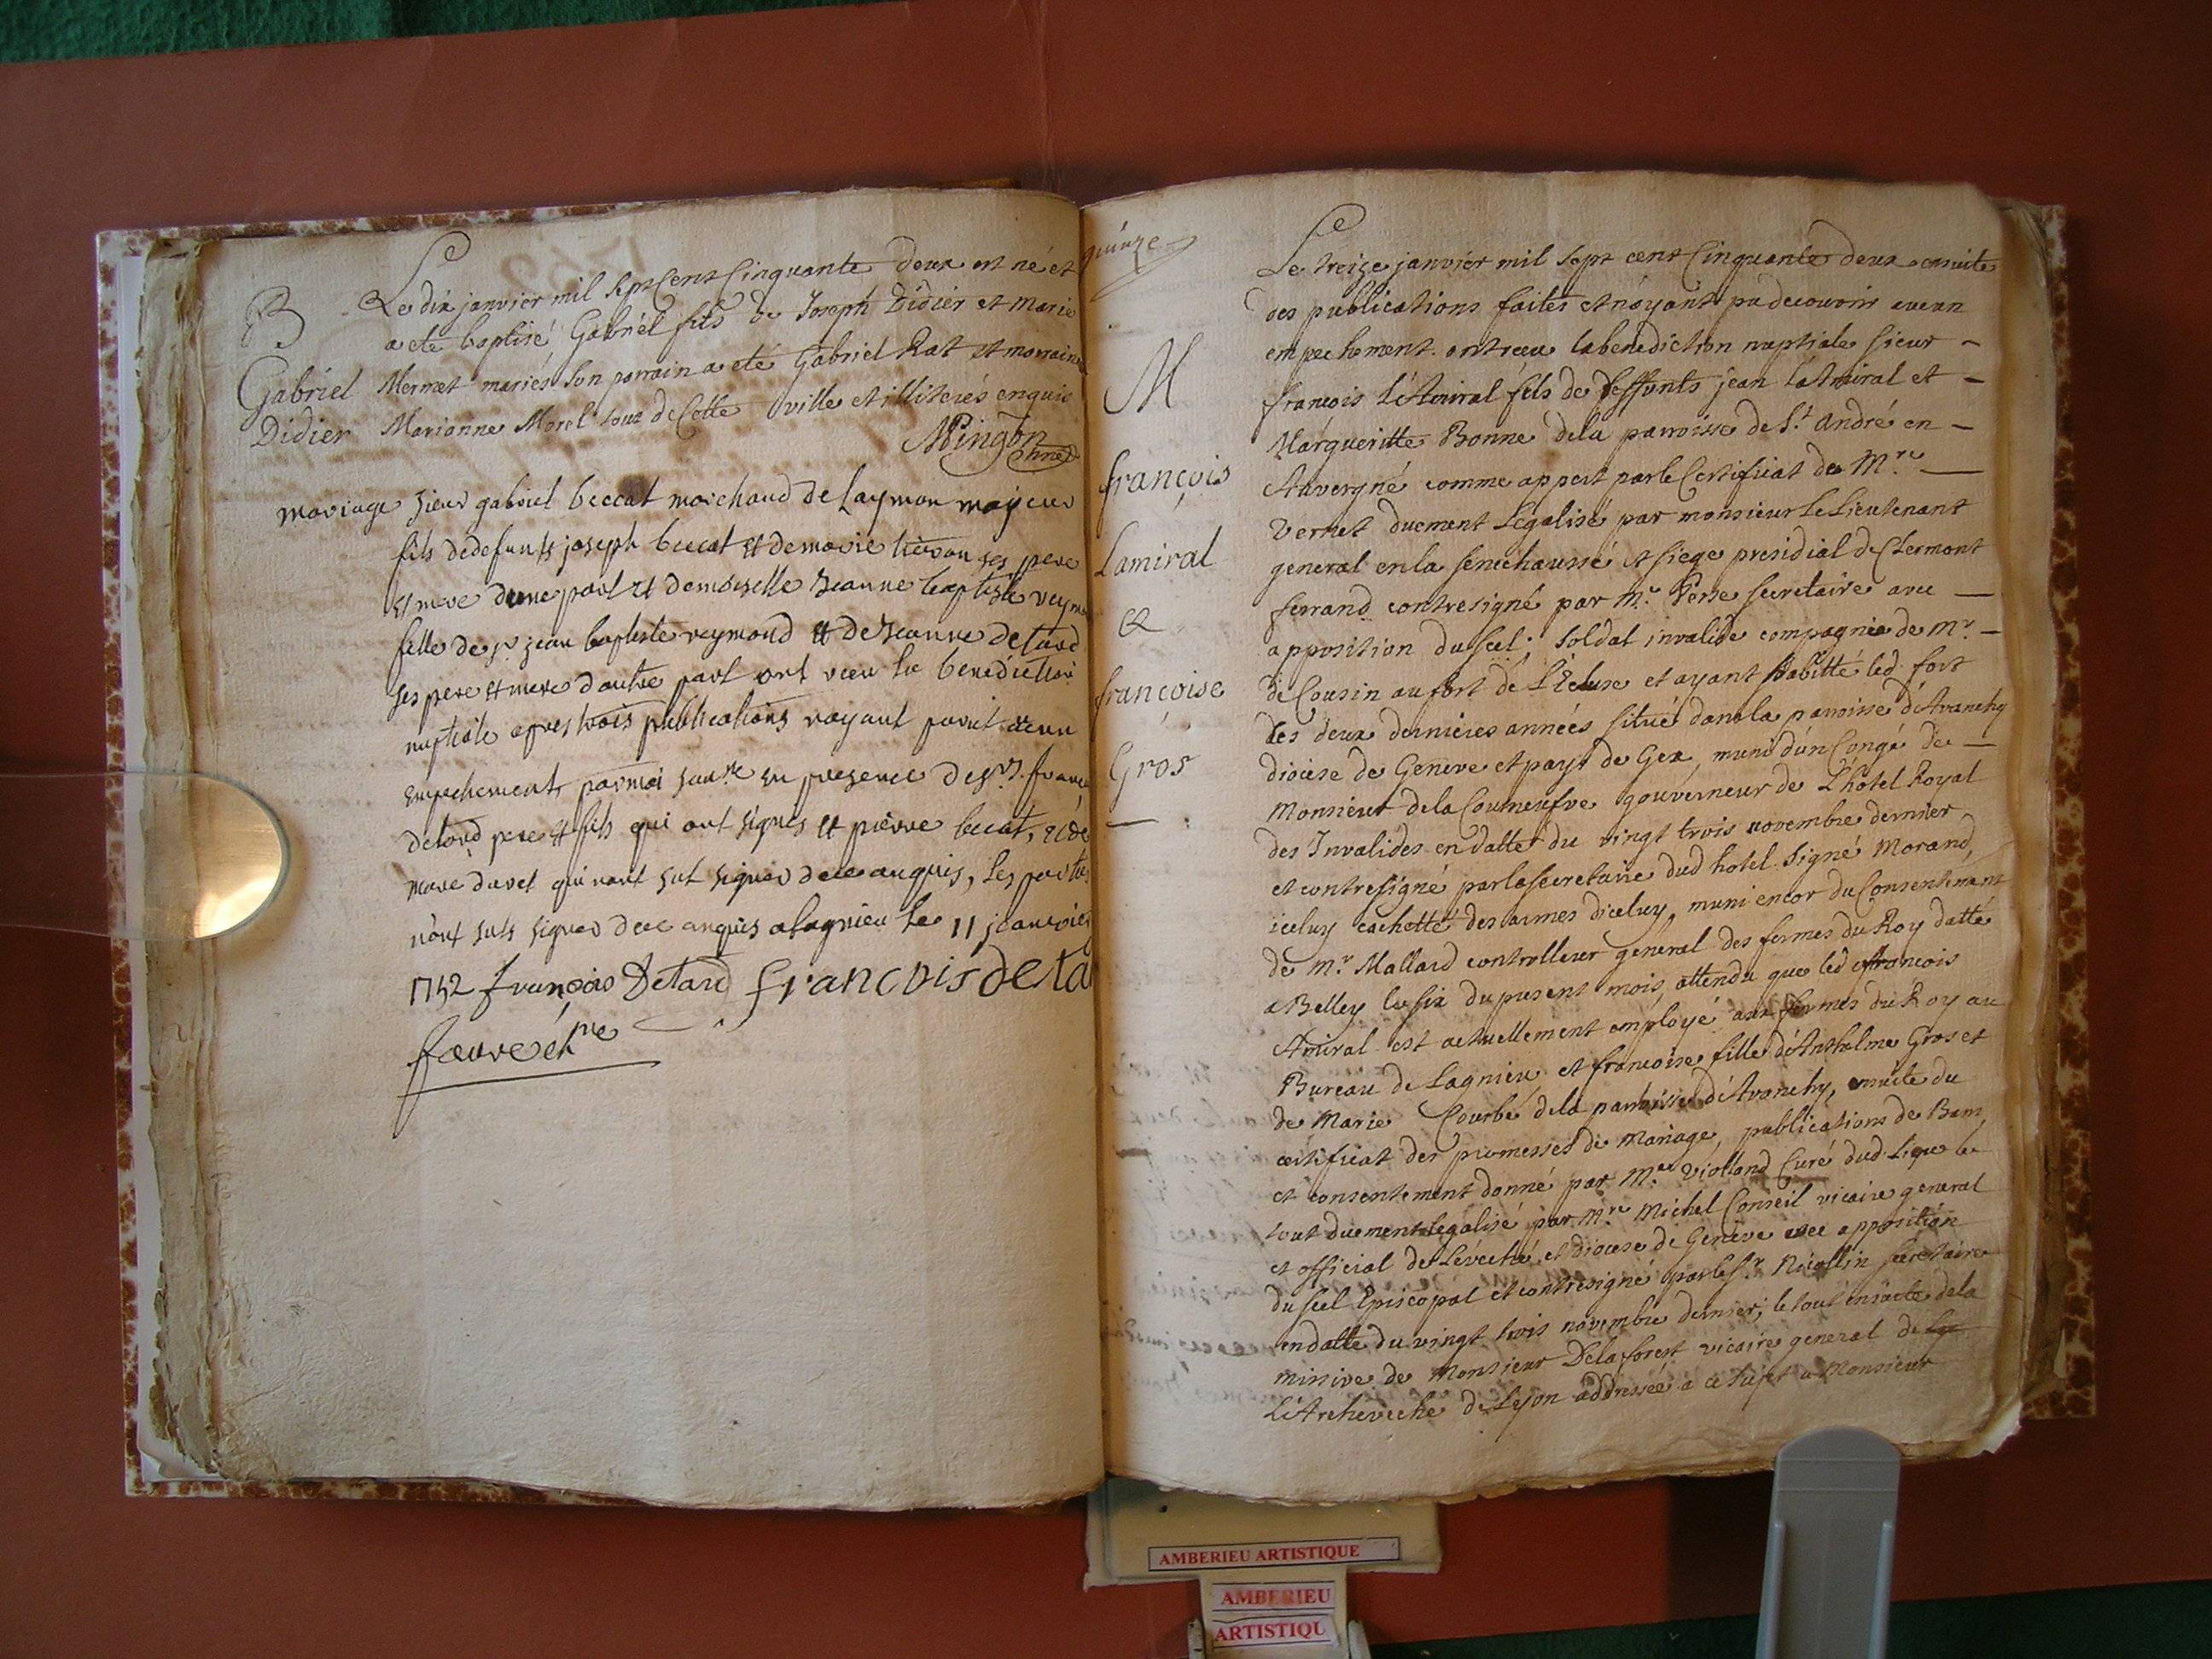 B
Gabriel
Didier
Le dix janvier mil sept Cent Cinquante deux est né et
a eté baptisé Gabriel fils de Joseph Didier et Marie
Mermet mariés son parrain a eté Gabriel Rat et marraine
Marianne Morel tous de Cette ville et illiterés enquis
Mingon
mariage sieur gabriel beccat marchand de
fils de defunts joseph beccat et de marie ses pere
et mere dune part et demoiselle jeanne baptiste
fille de sr jean baptiste reymond et de jeanne detard
ses pere et mere dautre part ont recu la benediction
nuptiale apres trois publications nayant parut aucun
empechement par moi en presence de srs
detard pere et fils qui ont signés et pierre beccat,
qui nont sut signer de ce anquis, les parties
nont suts signer dece anquis a lagnieu le 11 janvier
1752 françois Detard françois deta
favre
quinze
M
françois
Lamiral
&
françoise
Gros
Le treize janvier mil sept cent Cinquante deux ensuite
des publications faites et n'ayant pu decouvrir aucun
empechement ont receu la benediction nuptiale sieur -
françois L'Amiral fils de deffunts jean L'Amiral et -
Margueritte Bonne de la parroisse de St. André en -
Auvergne comme appert par le Certificat de Mre. -
Vernet duement Légalisé par monsieur Le Lieutenant
general en la senechaussé et siege presidial de Clermont
ferrand contresigné par mr. Perse secretaire avec -
apposition du scel; soldat invalide compagnie de mr. -
de Cousin au fort de L'Ecluse et ayant habitté led. fort
les deux dernieres années situé dans la parroisse d'Avanchy
diocese de Geneve et pays de Gex, muni d'un Congé de -
Monsieur de la Courneufve gouverneur de L'hotel Royal
des Invalides en datte du vingt trois novembre dernier
et contresigné par le secretaire dud hotel signé Morand,
iceluy cachetté des armes d'iceluy, muni encor du Consentement
de mr. Mallard controlleur general des fermes du Roy datté
a Belley le six du present mois, attendu que led françois
Amiral est actuellement employé aux fermes du Roy au
Bureau de Lagnieu et francoise fille d'Anthelme Gros et
de Marie Courbe de la parroisse d'Avanchy, ensuite du
certificat des promesses de Mariage, publications de Bam
et consentement donné par Mre. Violland Curé dud. Lieu le
tout duement legalisé par Mre Michel Conseil vicaire general
et official de Léveché et diocese de Genève avec apposition
du scel Episcopal et contresigné par le Sr. Nicollin secretaire
en datte du vingt trois novembre dernier; le tout ensuitte de la
missive de Monsieur Delaforest vicaire general de
L'Archeveché de Lyon addressée a ce sujet a Monsieur
AMBERIEU ARTISTIQUE
AMBERIEU
ARTISTIQU